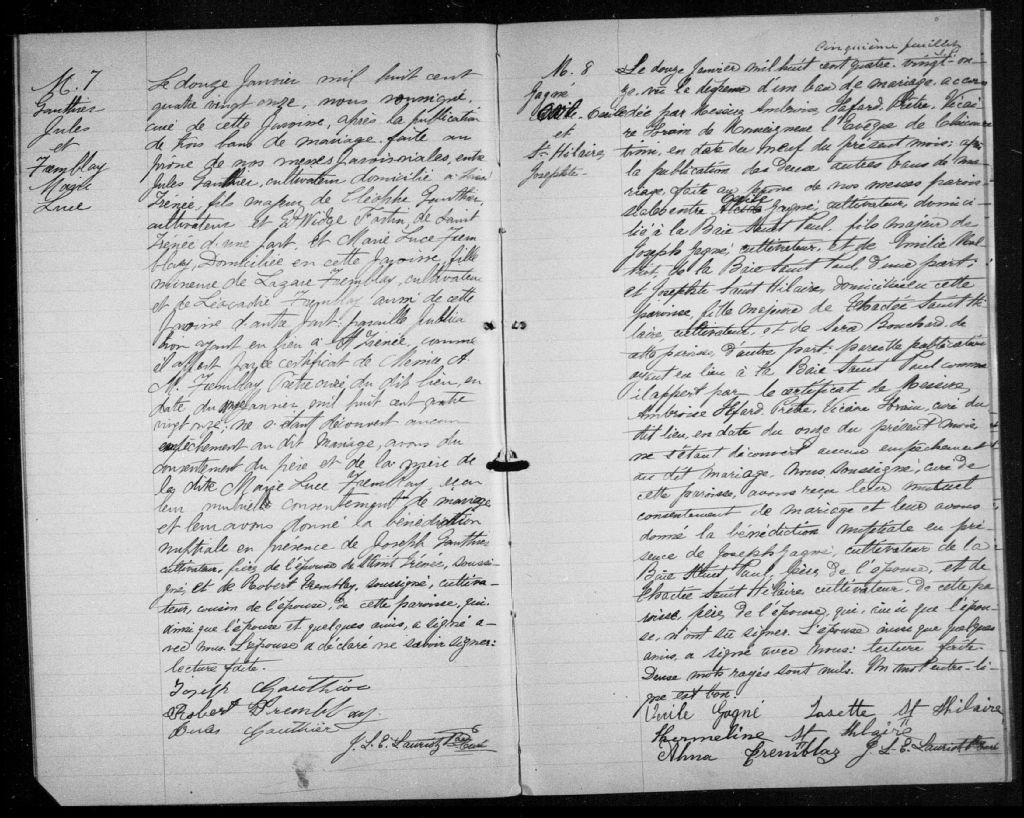 M. 7
Gauthier
Jules
et
Tremblay
Marie
Luce
Le douze Janvier mil huit cent
quatre vingt onze, nous soussigné,
curé de cette paroisse, après la publication
de trois bans de mariage, faite au
prône de nos messes paroissiales, entre
Jules Gauthier, cultivateur domicilié à Saint
Irénée, fils majeur de Cléophe Gauthier,
cultivateur et Edwidge Fortin de Saint
Irénée d'une part, et Marie Luce Trem
blay, domiciliée en cette paroisse, fille
mineure de Lazare Tremblay, cultivateur
et de Léocadie Tremblay aussi de cette
paroisse d'autre part: pareille publica
tion ayant eu lieu à St Irénée, comme
il appert par le certificat de Messire A
M. Tremblay, Prêtre curé, du dit lieu, en
date du onze janvier mil huit cent quatre
vingt onze: ne s'étant découvert aucun
empêchement au dit mariage, avons du
consentement du père et de la mère de
la dite Marie Luce Tremblay, reçu
leur mutuel consentement de mariage
et leur avons donné la bénédiction
nuptiale en présence de Joseph Gauthier
cultivateur, de Saint Irénée, soussi
gné, et de Robert Tremblay, soussigné, cultiva-
teur, cousin de l'épouse, de cette paroisse, qui,
ainsi que l'épouse et quelques amis, a signé a-
vec nous. L'épouse a déclaré ne savoir signer:
lecture faite.
Joseph Gauthier
Robert Tremblay.
Gauthier
J. L. E. Lauriot Ptre Curé
Cinquième feuillet
M. 8
Gagné
Ovile
et
St. Hilaire
Josephte.
Le douze Janvier mil huit cent quatre-vingt-on-
ze, vu la dispense d'un ban de mariage accor-
dée par Messire Ambroise Fafard, Prêtre, Vicai-
re Forain de Monseigneur l'Evêque de Chicou
timi, en date du neuf du présent mois; après
la publication des deux autres bans de ma-
riage, faite au prône de nos messes parois-
siales entre Ovile Gagné, cultivateur, domici-
lié à la Baie Saint Paul, fils majeur de
Joseph Gagné, cultivateur, et de Emilie
de la Baie Saint Paul d'une part;
et Josephte Saint Hilaire, domiciliée en cette
paroisse, fille majeure de Saint Hi-
laire, cultivateur, et de Sara Bouchard, de
cette paroisse, d'autre part: pareille publication
ayant eu lieu à la Baie Saint Paul comme
il appert par le certificat de Messire
Ambroise Fafard, Prêtre, Vicaire Forain, curé du
dit lieu, en date du onze du présent mois
ne s'étant découvert aucun empêchement
au dit mariage. Nous, soussigné, curé de
cette paroisse, avons reçu leur mutuel
consentement de mariage et leur avons
donné la bénédiction nuptiale en pré-
sence de Joseph Gagné, cultivateur de la
Baie Saint Paul, père, de l'époux, et de
Saint Hilaire, cultivateur, de cette pa-
roisse, père, de l'épouse, qui, ainsi que l'épou-
se, n'ont su signer. L'époux ainsi que quelques
amis, a signé avec nous: lecture faite.
Deux mots rayés sont nuls. Un mot entre-li-
gne est bon.
Ovile Gagné Josette St Hilaire
Hermeline St Hilaire
Alma Tremblay J. L. E. Lauriot Ptre Curé